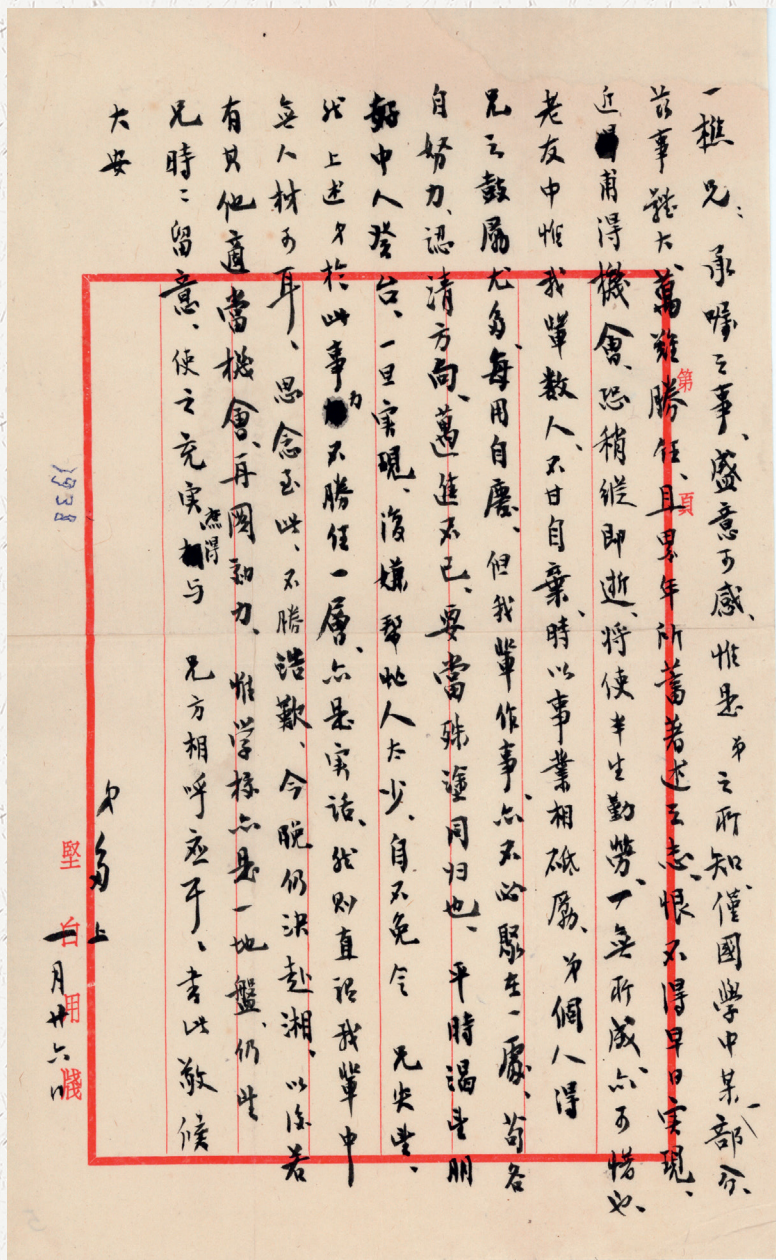 一樵兄：承囑之事、盛意可感、惟是弟之所知、僅國學中某一部分、
茲事體大、萬難勝任、且累年所蓄著述之志、恨不得早日实現、
近甫得機會、恐稍縱即逝、將使半生勤勞、一無所成、亦可惜也、
老友中惟我輩数人、不甘自棄、時以事業相砥厲、弟個人得
兄之鼓厲尤多、每用自慶、但我輩作事、亦不必聚在一處、苟各
自努力、認清方向、邁進不已、要當殊塗同归也、平時渴望朋
好中人登台、一旦实現、復嫌帮忙人太少、自不免令 兄失望、
然上述弟於此事力不勝任一層、亦是实話、然則直謂我輩中
無人材可耳、思念至此、不勝浩歎、今晚仍決赴湘、以後若
有其他適當機會、再圖効力、惟学校亦是一地盤、仍望
兄時〻留意、使之充实庶得与 兄方相呼应耳、書此敬候
大安
弟多上
一月廿六日
第 頁
堅白用牋
1938
5